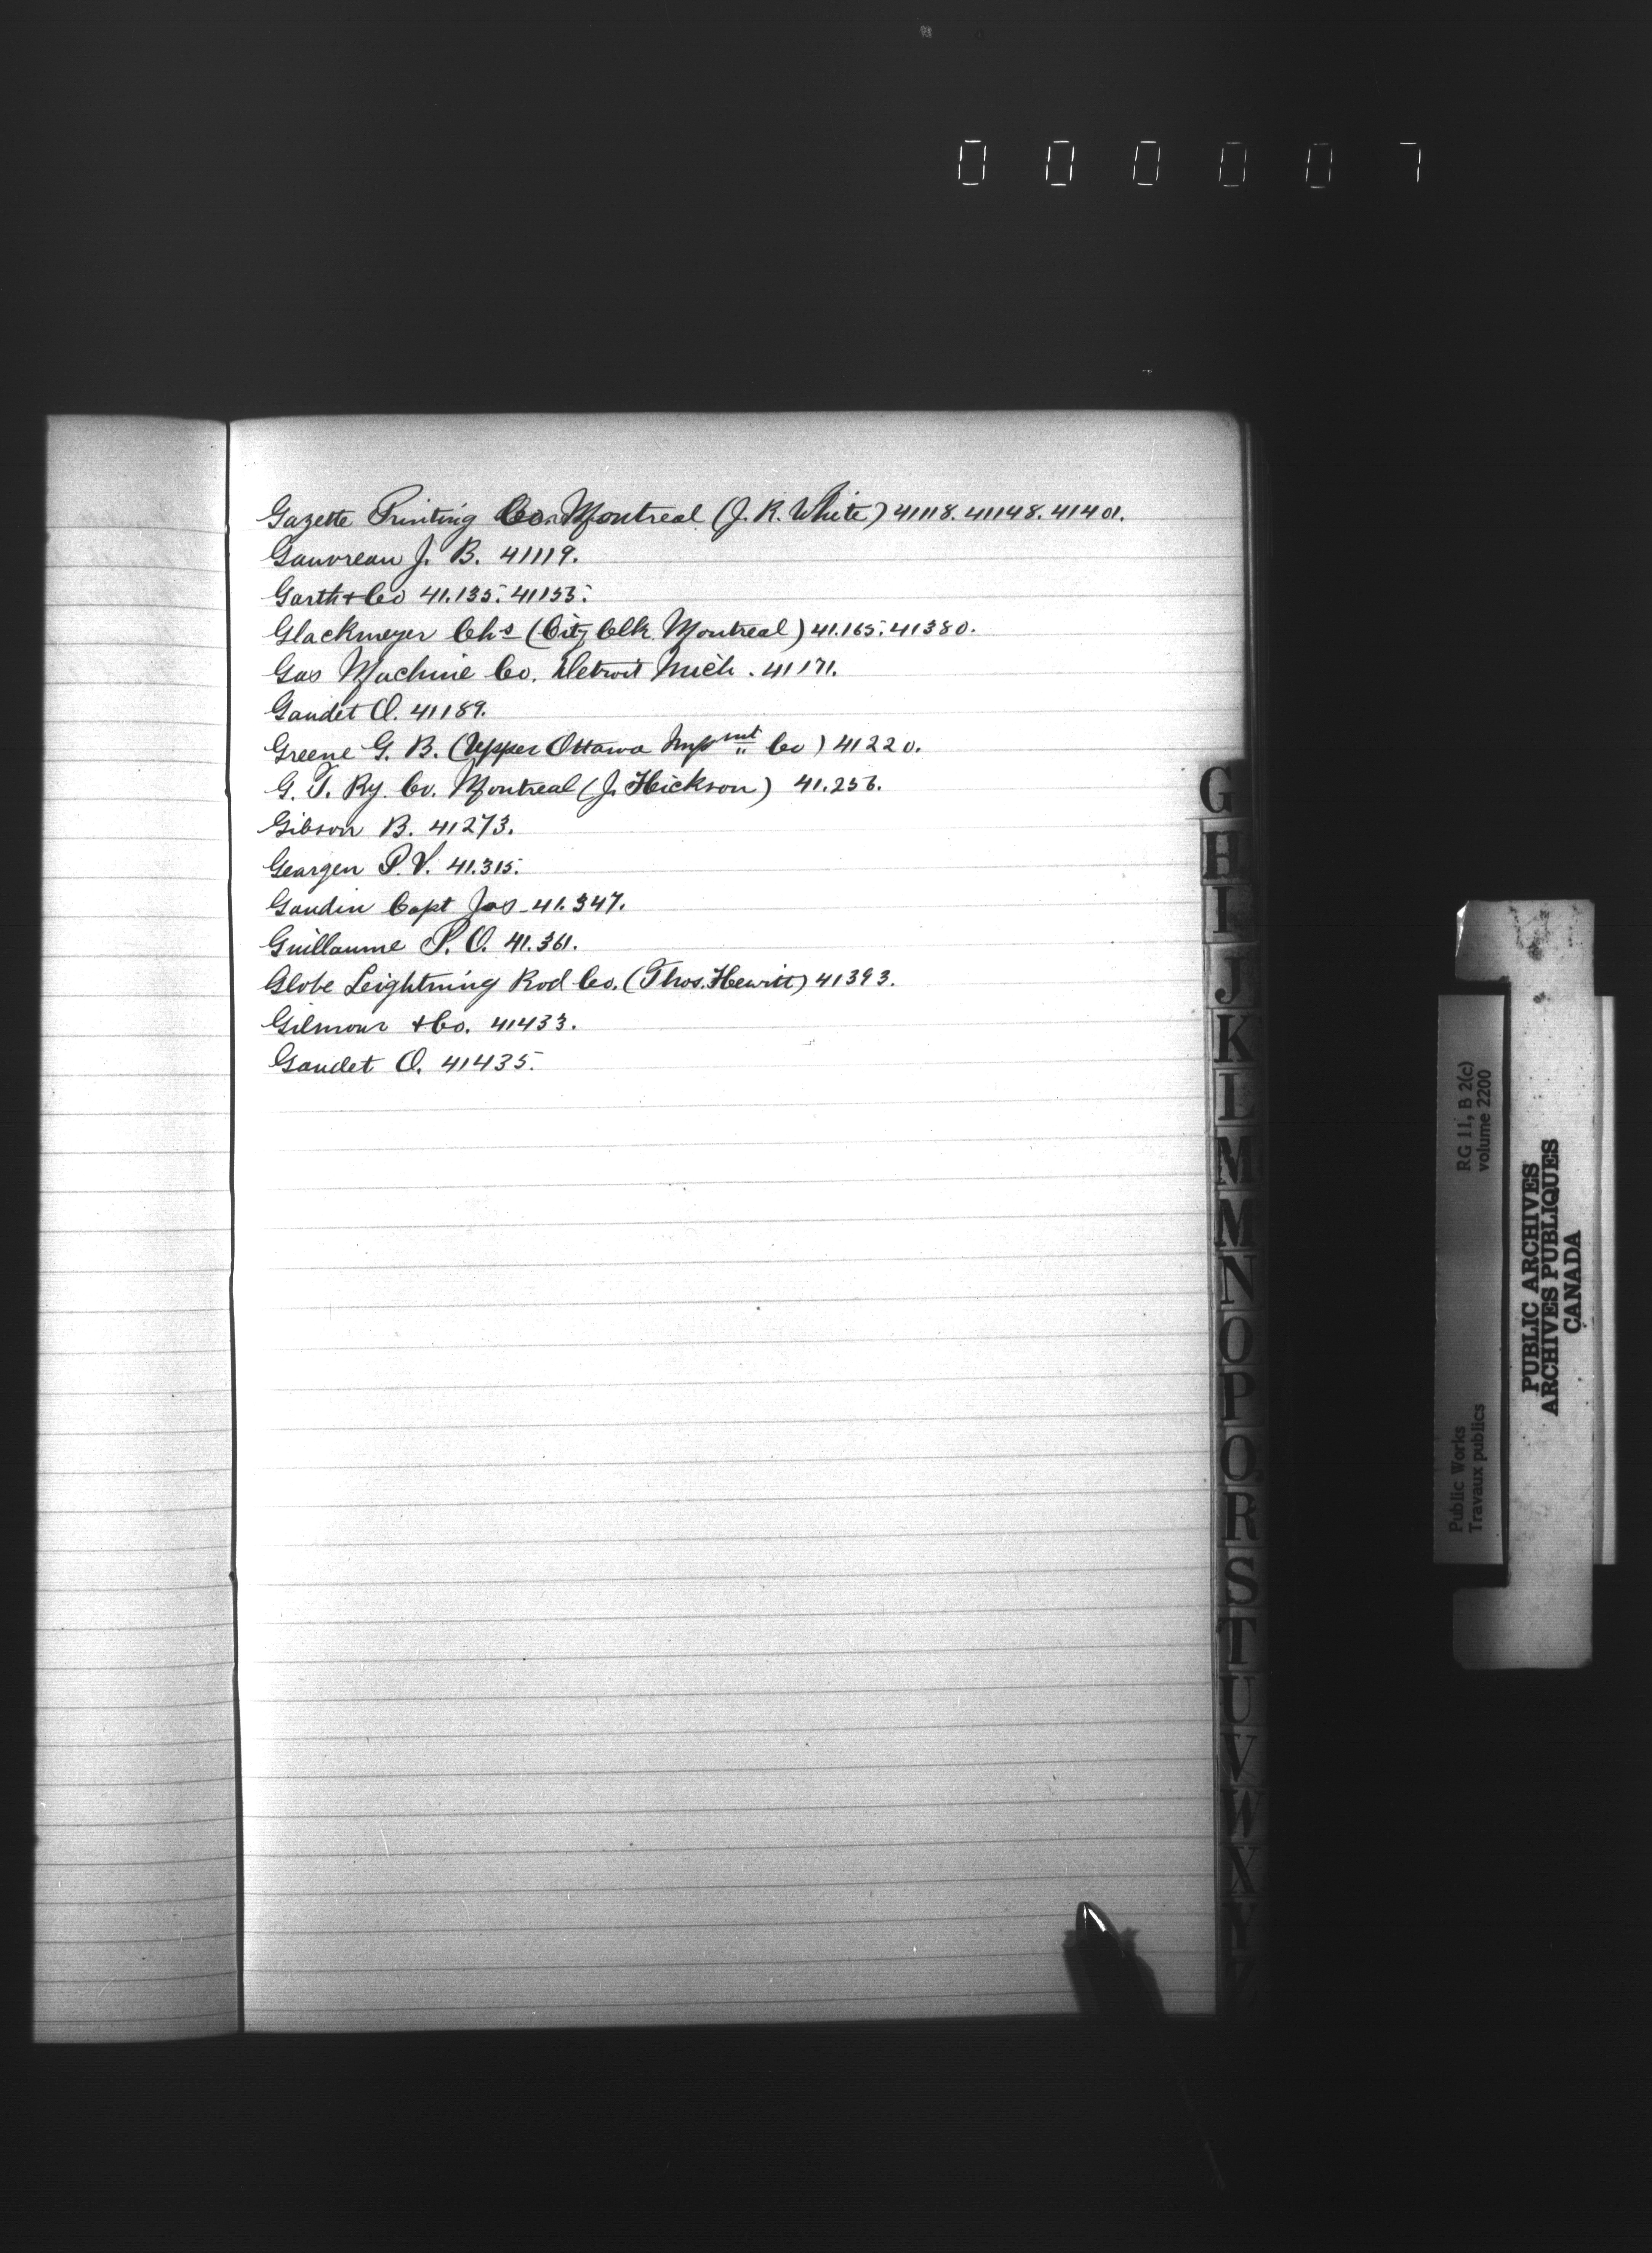 000007
Gazette Printing Co. Montreal (J. R. White) 41118. 41148. 41401.
Gauvreau J. B. 41119.
Garth & Co 41.135. 41153.
Glackmeyer Chs (City Clk Montreal) 41.165. 41380.
Gas Machine Co. Detroit Mich. 41171.
Gaudet O. 41189.
Greene G. B. (Upper Ottawa Impmt Co) 41220.
G. T. Ry. Co. Montreal (J. Hickson) 41.256.
Gibson B. 41273.
Geargen P. V. 41.315.
Gaudin Capt Jas 41.347.
Guillaume P. O. 41.361.
Globe Leightning Rod Co. (Thos. Hewitt) 41393.
Gilmour & Co. 41433.
Gaudet O. 41435.
G
H
I
J
K
L
M
M
N
O
P
Q
R
S
T
U
V
W
X
Y
Z
Public Works
Travaux publics
RG 11, B 2(c)
volume 2200
PUBLIC ARCHIVES
ARCHIVES PUBLIQUES
CANADA